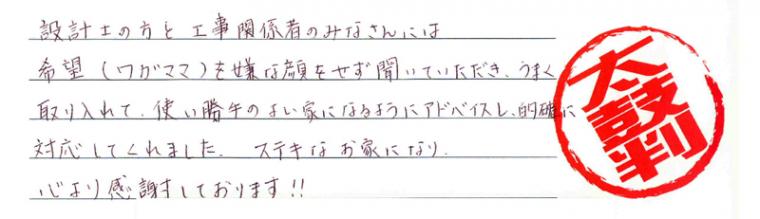 設計士の方と工事関係者のみなさんには
希望(ワガママ)を嫌な顔をせず聞いていただき、うまく
取り入れて、使い勝手のよい家になるようにアドバイスし、的確に
対応してくれました。 ステキなお家になり、
心より感謝しております!!
太鼓判